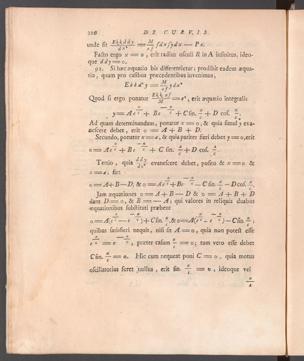 286 DE CURVIS
unde fit Ekkddy/dx² = M/af ∫dx∫ydx — Px.
Facto ergo x = 0, erit radius osculi R in A infinitus, ideo-
que ddy = 0.
92. Si haec aequatio bis differentietur; prodibit eadem aequa-
tio, quam pro casibus praecedentibus invenimus,
Ekkd⁴y = M/af ydx⁴
Quod si ergo ponatur Ekkaf/M = c⁴, erit aequatio integralis
y = Ae^(x/c) + Be^(-x/c) + C sin. x/c + D cos. x/c.
Ad quam determinandum, ponatur x = 0, & quia simul y eva-
nescere debet, erit 0 = A + B + D.
Secundo, ponatur x = a, & quia pariter fieri debet y = 0, erit
0 = Ae^(a/c) + Be^(-a/c) + C sin. a/c + D cos. a/c.
Tertio, quia ddy/dx² evanescere debet, posito & x = 0 &
x = a; fiet
0 = A + B — D, & 0 = Ae^(a/c) + Be^(-a/c) — C sin. a/c — D cos. a/c.
Jam aequationes 0 = A + B — D & 0 = A + B + D
dant D = 0, & B = — A; qui valores in reliquis duabus
aequationibus substituti praebent
0 = A(e^(a/c) — e^(-a/c)) + C sin. a/c, & 0 = A(e^(a/c) — e^(-a/c)) — C sin. a/c;
quibus satisfieri nequit, nisi sit A = 0, quia non potest esse
e^(a/c) = e^(-a/c), praeter casum a/c = 0; tum vero esse debet
C sin. a/c = 0. Hic cum nequeat poni C = 0, quia motus
oscillatorius foret nullus, erit sin. a/c = 0, ideoque vel
a/c